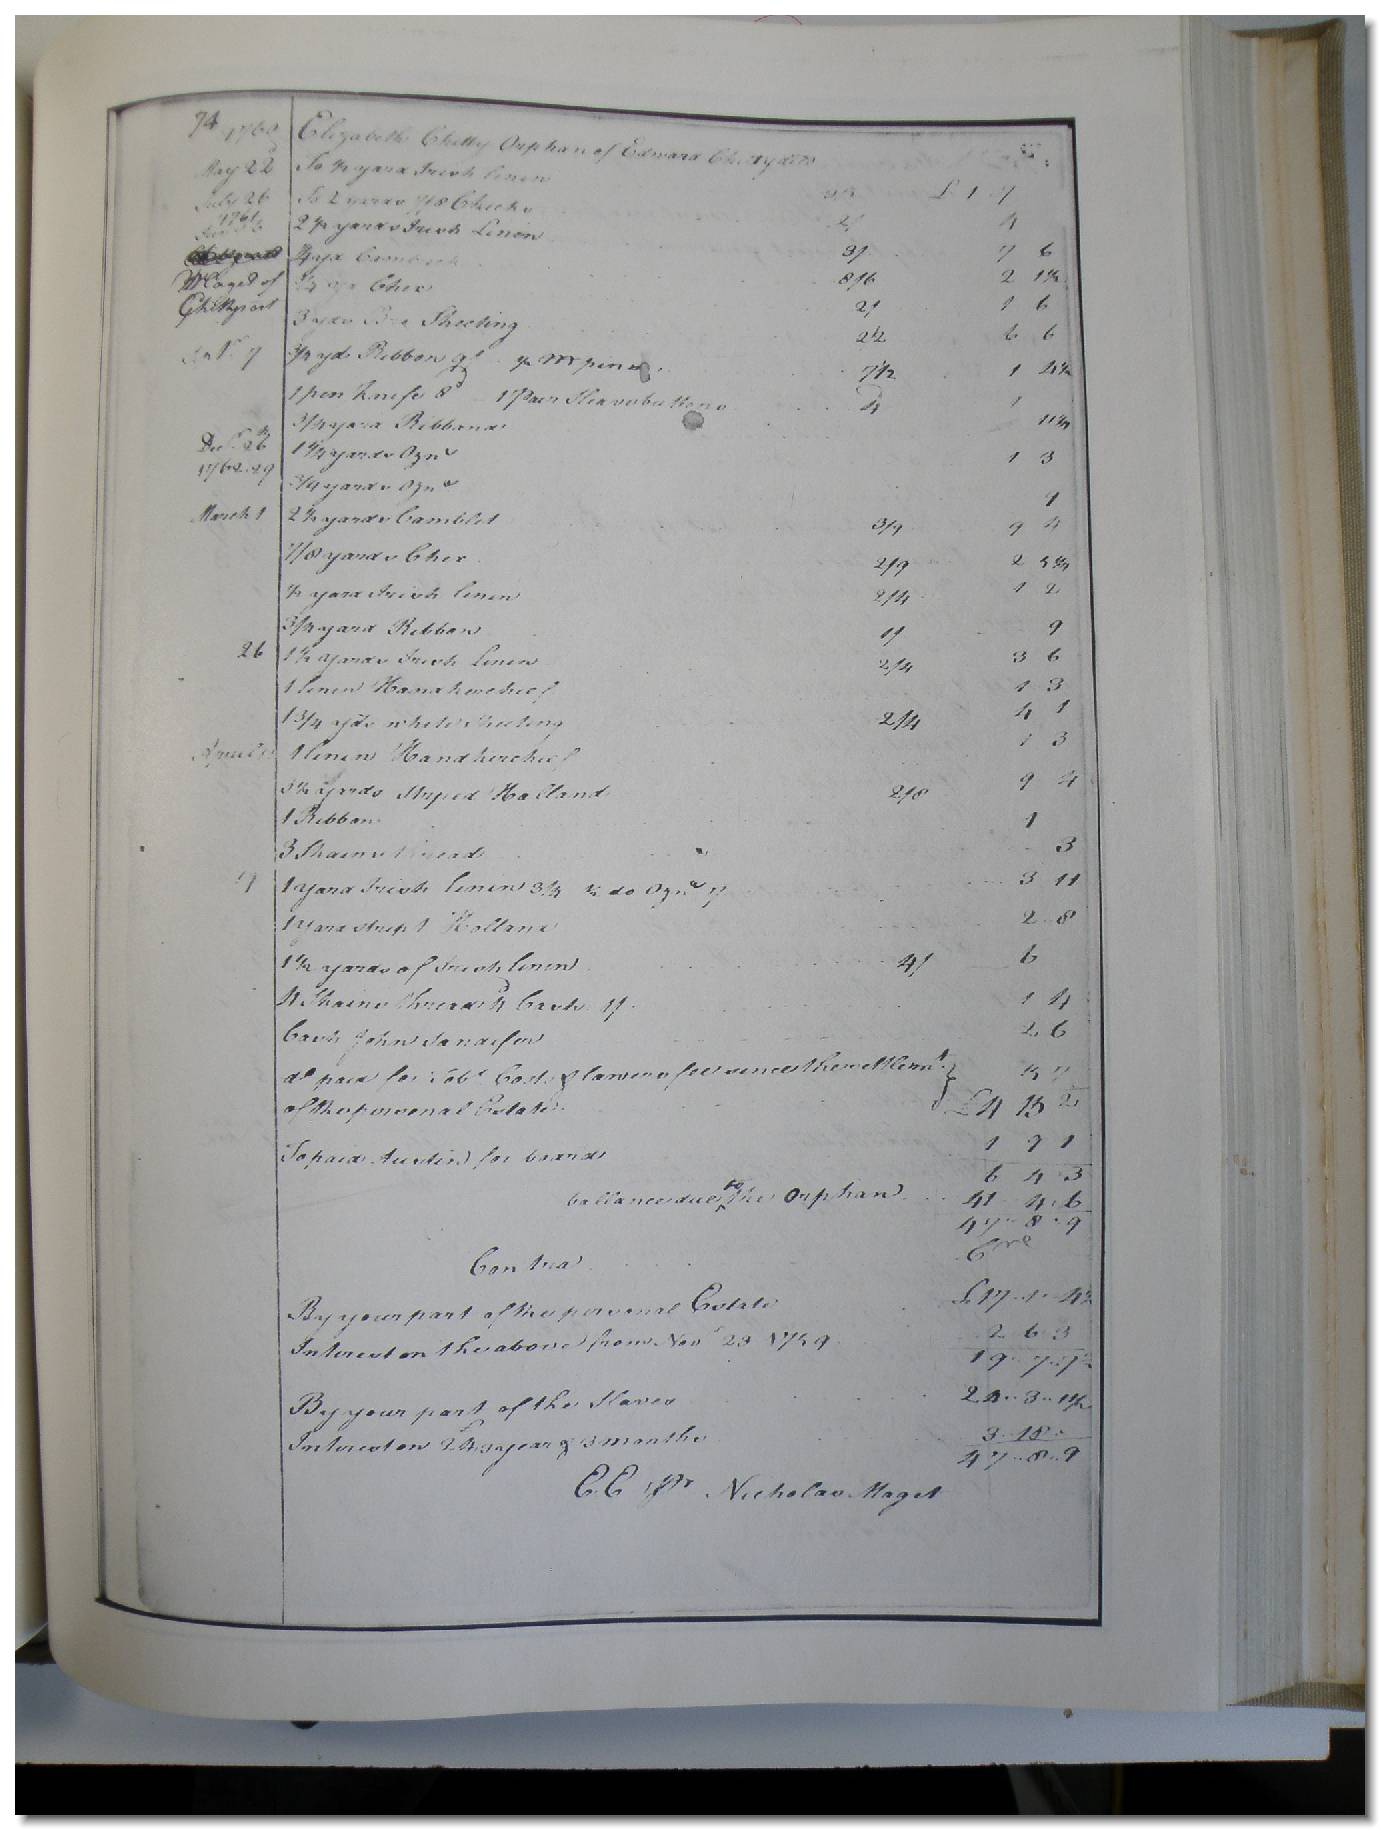 74 1760 Elizabeth Chitty Orphan of Edward Chitty
May 22 To ½ yard Irish linen £ 1 7
July 26 To 2 yards 7/8 Checks 2/ 4
1761 2 ½ yards Irish Linen 3/ 7 6
¼ yd Cambrick 8/6 2 1½
3/4 yd Chex 2/ 1 6
3 yds Sheeting 2/2 6 6
7 yd Ribbon 7½ 1 4½
1 pen Knife 8d 1 Pair Sleevebuttons 4 1
3/4 yard Ribband 11¼
Decr. 26 1 ¼ yards Ozna 1 3
1762 29 3/4 yards Ozna 9
March 1 2 ½ yards Camblet 3/9 9 4
7/8 yards Chex 2/9 2 5¼
½ yard Irish linen 2/4 1 2
3/4 yard Ribbon 1/ 9
26 1 ½ yards Irish linen 2/4 3 6
1 linen Handkerchief 1 3
1 3/4 yds white Sheeting 2/4 4 1
April 1 linen Handkerchief 1 3
3 ½ yards striped Holland 2/8 9 4
1 Ribbon 1
3 Skains thread 3
1 yard Irish linen 3/4 ½ do Ozna 7 3 11
1 yard stript Holland 2 8
1 ½ yards of Irish linen 4/ 6
4 Skains thread 4d Cash 1/ 1 4
Cash John Sandefur 2 6
do paid for Tobo Cost & lawers fee since the settlemt.
of the personal Estate £4 15 2
To paid Austin for board 1 9 1
6 4 3
ballance due to the Orphan 41 4 6
47 8 9
Contra Cre
By your part of the personal Estate £17 1 4½
Interest on the above from Novr 23 1759 2 6 3
19 7 7½
By your part of the Slaves 24 3 1½
Interest on 3 year & 3 months 3 18
47 8 9
E E pr Nicholas Maget